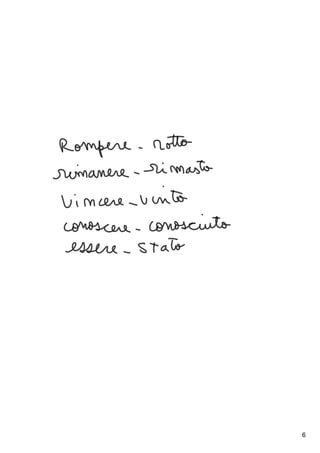 Rompere - rotto
rimanere - rimasto
Vincere - vinto
conoscere - conosciuto
essere - stato
6